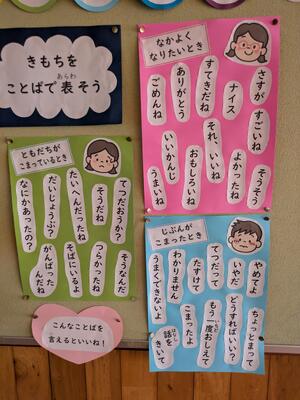 きもちを
ことばで表そう
あらわ
なかよく
なりたいとき
さすが
すごいね
そうそう
ナイス
よかったね
すてきだね
それ、いいね
おもしろいね
ありがとう
いいかんじ
ごめんね
うまいね
ともだちが
こまっているとき
てつだおうか?
そうだね
たいへんだったね
だいじょうぶ?
なにかあったの?
そうなんだ
つらかったね
そばにいるよ
がんばった
んだね
じぶんが
こまったとき
やめてよ
いやだ
てつだって
たすけて
わかりません
うまくできないよ
ちょっとまって
どうすればいい?
もう一度おしえて
いちど
こまったよ
話を
はなし
きいて
こんなことばを
言えるといいね!